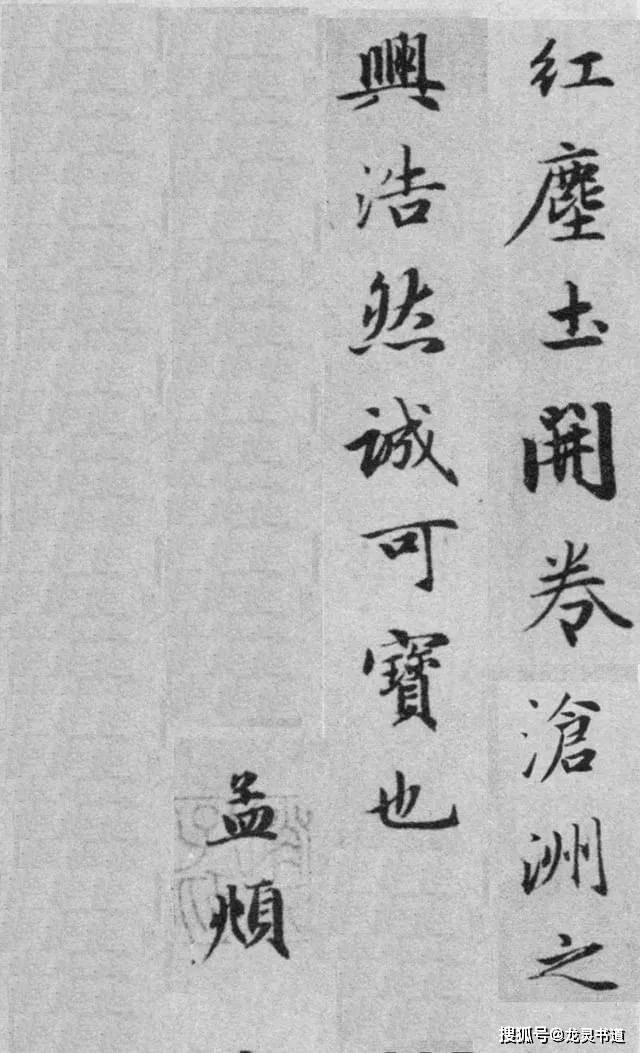 红塵土開卷滄洲之
興浩然誠可寶也
孟頫
搜狐号@龙灵书道